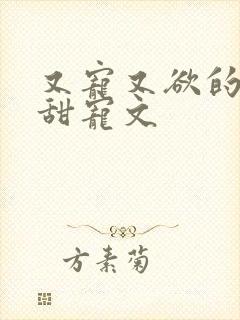 又寵又欲的
甜寵文
方素菊